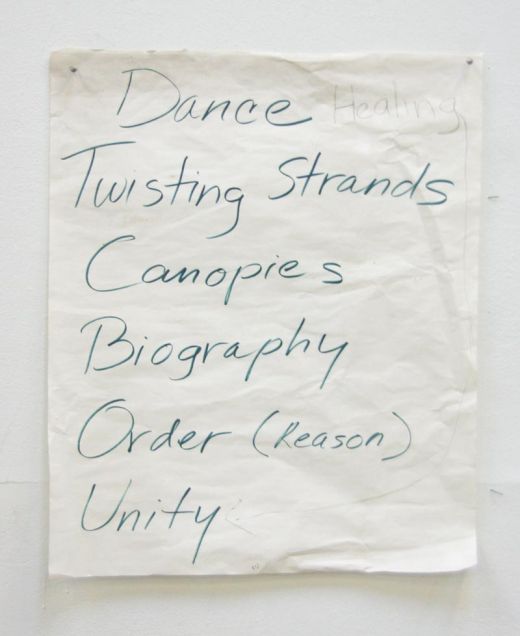 Dance Healing
Twisting Strands
Canopies
Biography
Order (Reason)
Unity